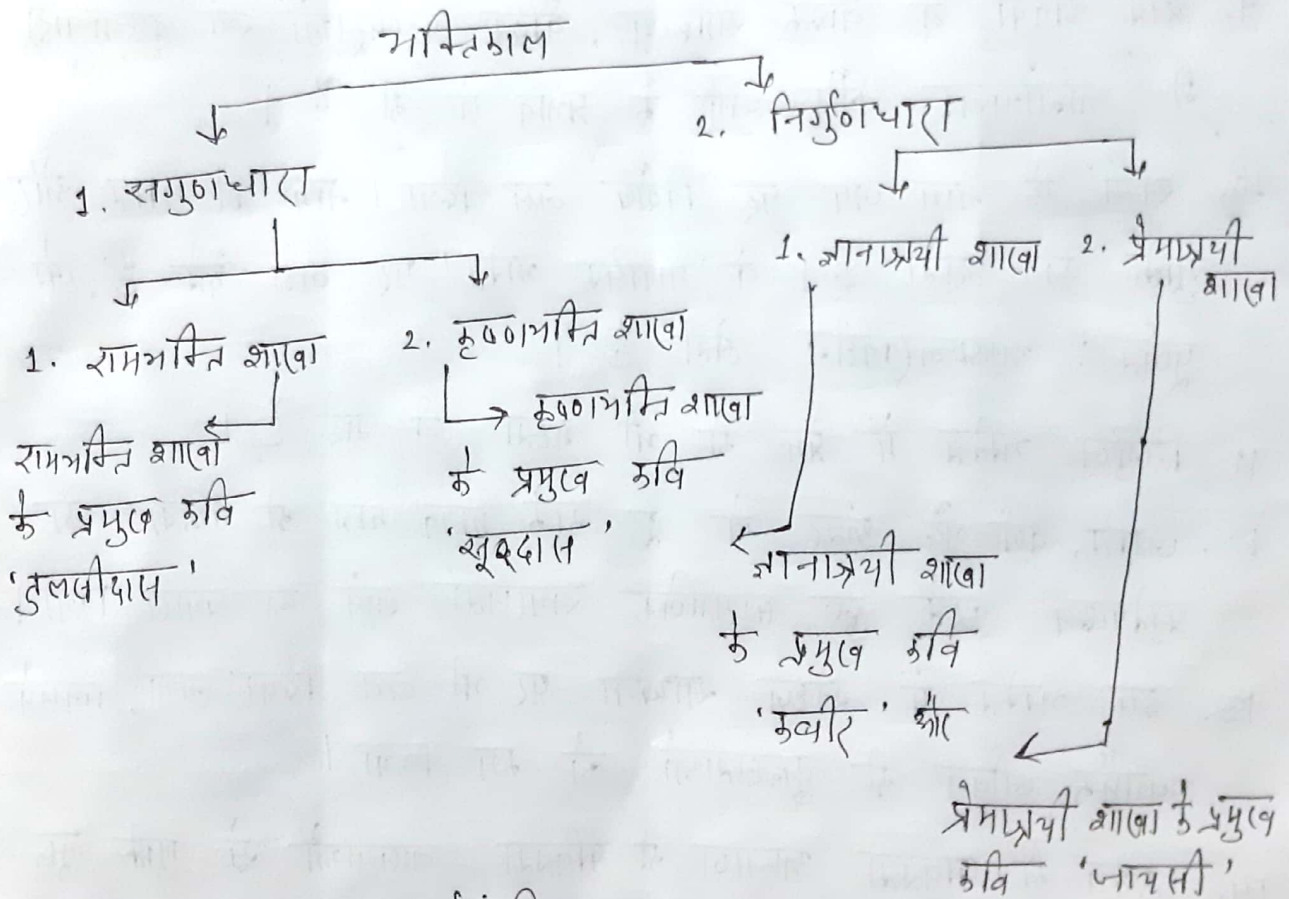 भक्तिकाल
1. सगुणधारा
2. निर्गुणधारा
1. रामभक्ति शाखा
2. कृष्णभक्ति शाखा
1. ज्ञानाश्रयी शाखा
2. प्रेमाश्रयी
शाखा
रामभक्ति शाखा
के प्रमुख कवि
'तुलसीदास'
कृष्णभक्ति शाखा
के प्रमुख कवि
'सूरदास'
ज्ञानाश्रयी शाखा
के प्रमुख कवि
'कबीर' और
प्रेमाश्रयी शाखा के प्रमुख
कवि 'जायसी'